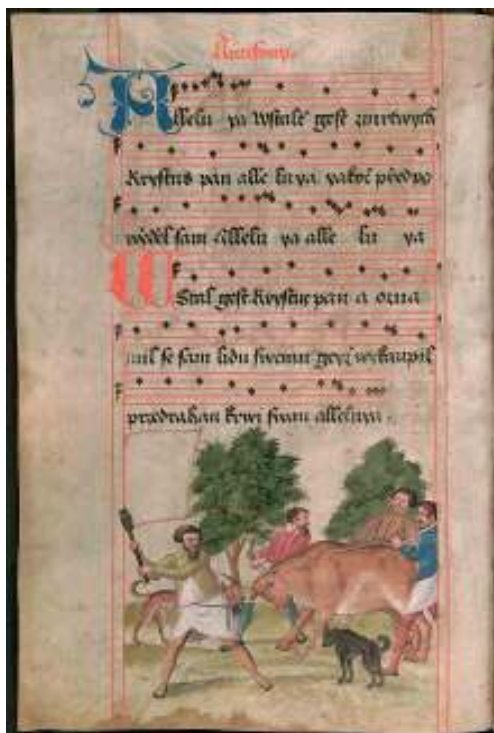 Allelu ya Wstalť gest zmrtwych
Krystus pán alle lu ya yakož předpo
wěděl sám Allelu ya alle lu ya
WStal gest Krystus pan a ozna
mil se sám lidu swemu geyž wykaupil
předrahau krwi swau alleluya.